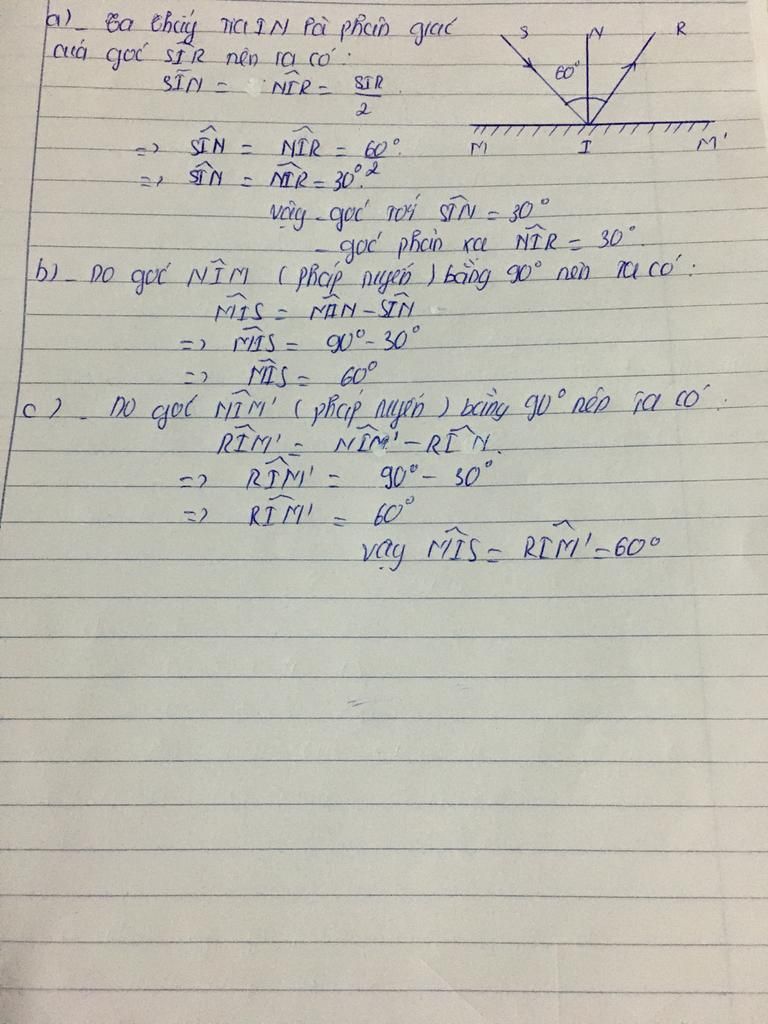 a) - Ta thấy tia IN là phân giác
của góc SIR nên ta có:
SIN = NIR = SIR/2
=> SIN = NIR = 60°/2
=> SIN = NIR = 30°
Vậy - góc tới SIN = 30°
- góc phản xạ NIR = 30°.
b) - Do góc NIM (pháp tuyến) bằng 90° nên ta có:
MIS = MIN - SIN
=> MIS = 90° - 30°
=> MIS = 60°
c) - Do góc NIM' (pháp tuyến) bằng 90° nên ta có:
RIM' = NIM' - RIN.
=> RIM' = 90° - 30°
=> RIM' = 60°
Vậy MIS = RIM' = 60°
S N R
60°
M I M'